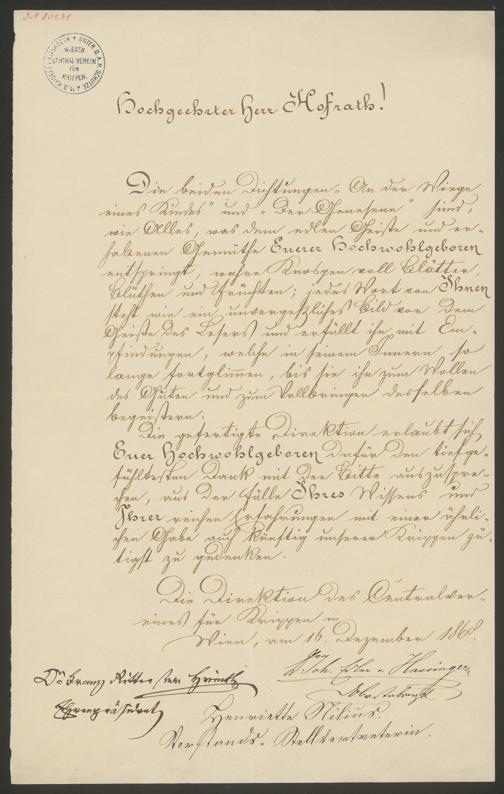 WIENER
CENTRAL-VEREIN
FÜR
KRIPPEN
Hochgeehrter Herr Hofrath!
Die beiden Dichtungen „An der Wiege
eines Kindes“ und „Der Genesene“ sind,
wie Alles, was dem edlen Geiste und er-
habenen Gemüthe Euerer Hochwohlgeboren
entspringt, wahre Knospen voll Blätter,
Blüthen und Früchten; jedes Wort von Ihnen
steht wie ein unvergeßliches Bild vor dem
Geiste des Lesers und erfüllt ihn mit Em-
pfindungen, welche in seinem Innern so
lange fortglimen, bis sie ihn zum Wollen
des Guten und zum Vollbringen desselben
begeistern.
Die gefertigte Direktion erlaubt sich
Euer Hochwohlgeboren dafür den tiefge-
fühltesten Dank mit der Bitte auszuspre-
chen, aus der Fülle Ihres Wissens und
Ihrer reichen Erfahrungen mit einer ähnli-
chen Gabe auch künftig unserer Krippen gü-
tigst zu gedenken.
Die Direktion des Centralver-
eines für Krippen in
Wien, am 16. Dezember 1868.
Dr Franz Ritter
Ehrenpräsident
Henriette Nilius.
Vorstands-Stellvertreterin.